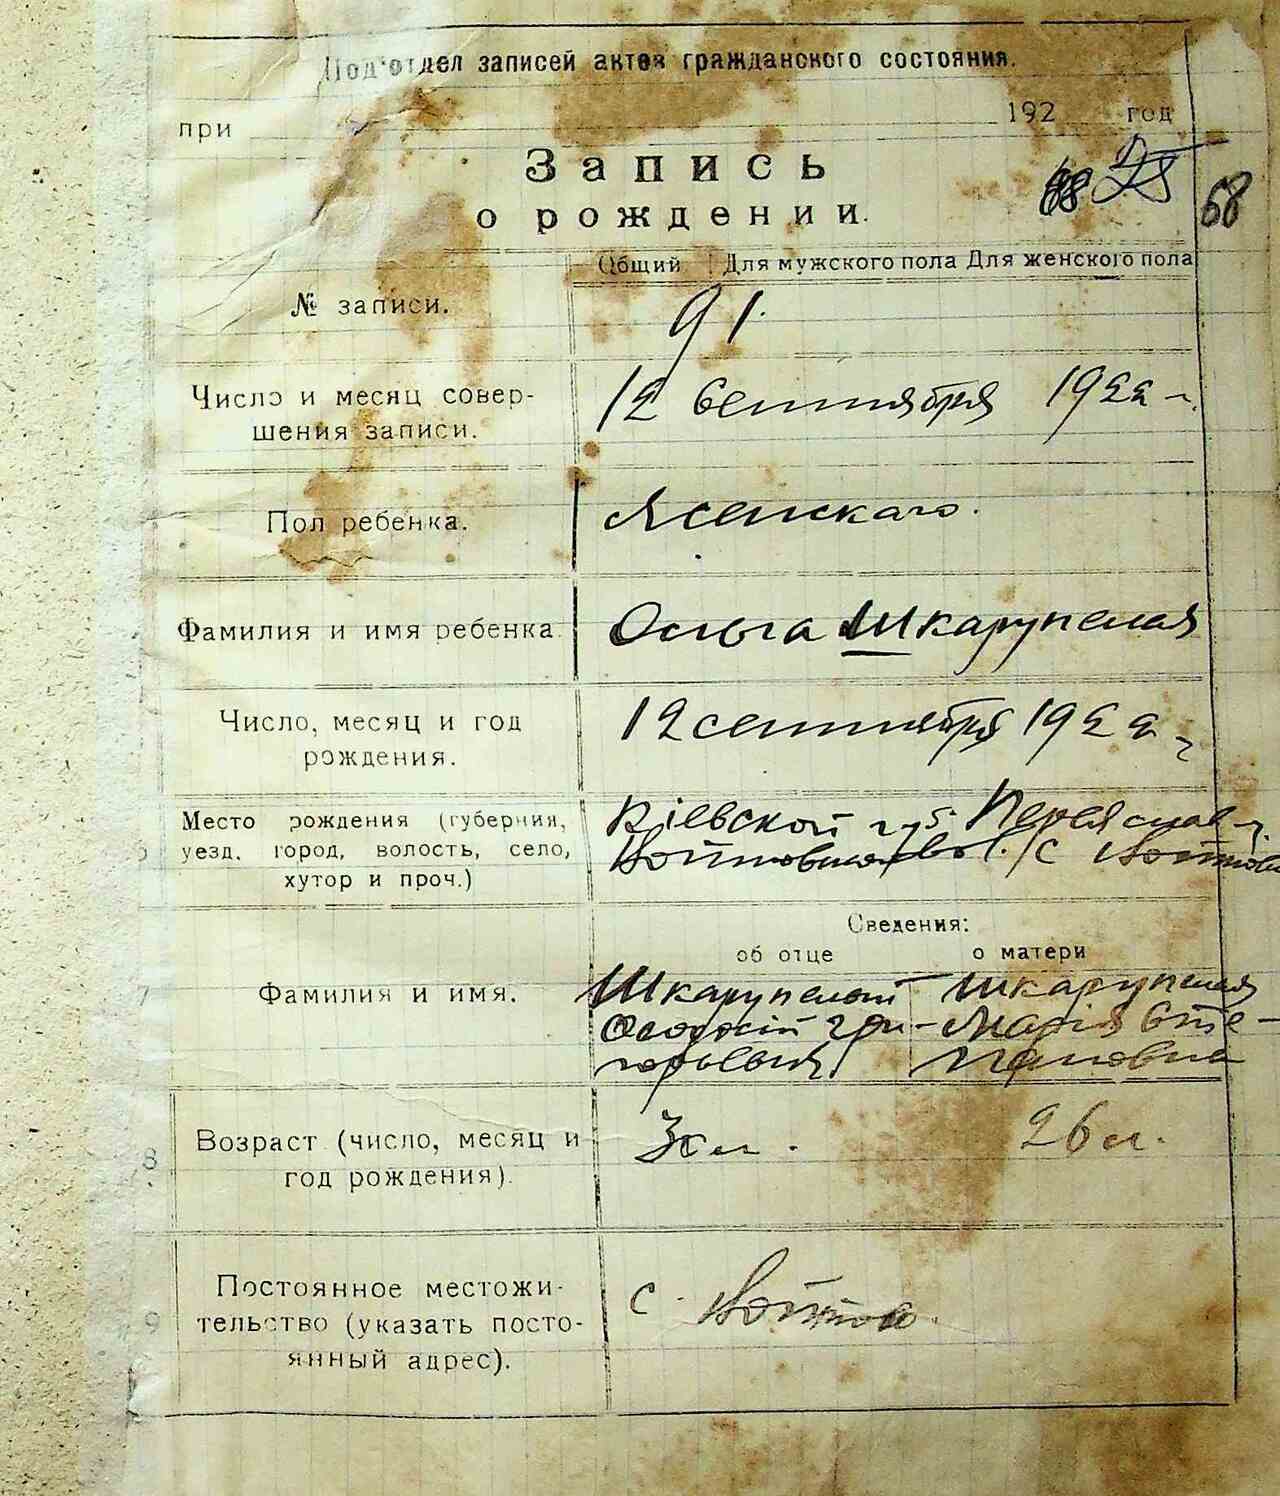 Под'отдел записей актов гражданского состояния.
при 192 год
Запись
о рождении.
68
Общий Для мужского пола Для женского пола
№ записи.
91.
Число и месяц совер-
шения записи.
12 Сентября 1922 г.
Пол ребенка.
Женскаго.
Фамилия и имя ребенка.
Ольга Шкарупелая
Число, месяц и год
рождения.
12 сентября 1922 г.
Место рождения (губерния,
уезд, город, волость, село,
хутор и проч.)
Кіевской губ. Переяслав. у.
вол. с
Сведения:
об отце о матери
7 Фамилия и имя.
Шкарупелый Шкарупелая
Гри- Марія Сте-
горьевич пановна
8 Возраст (число, месяц и
год рождения).
26 л.
9 Постоянное местожи-
тельство (указать посто-
янный адрес).
с.